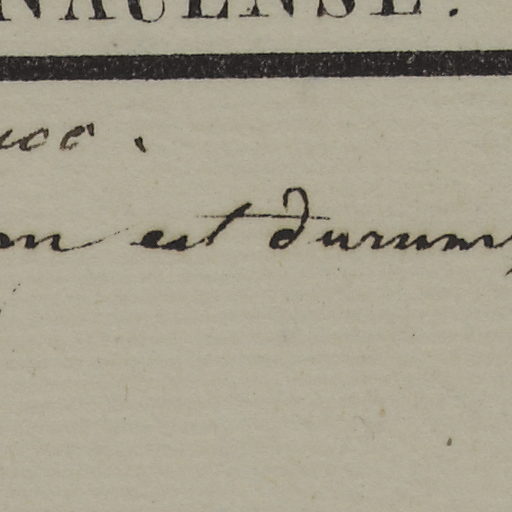 NAUENSE.
on est durum,